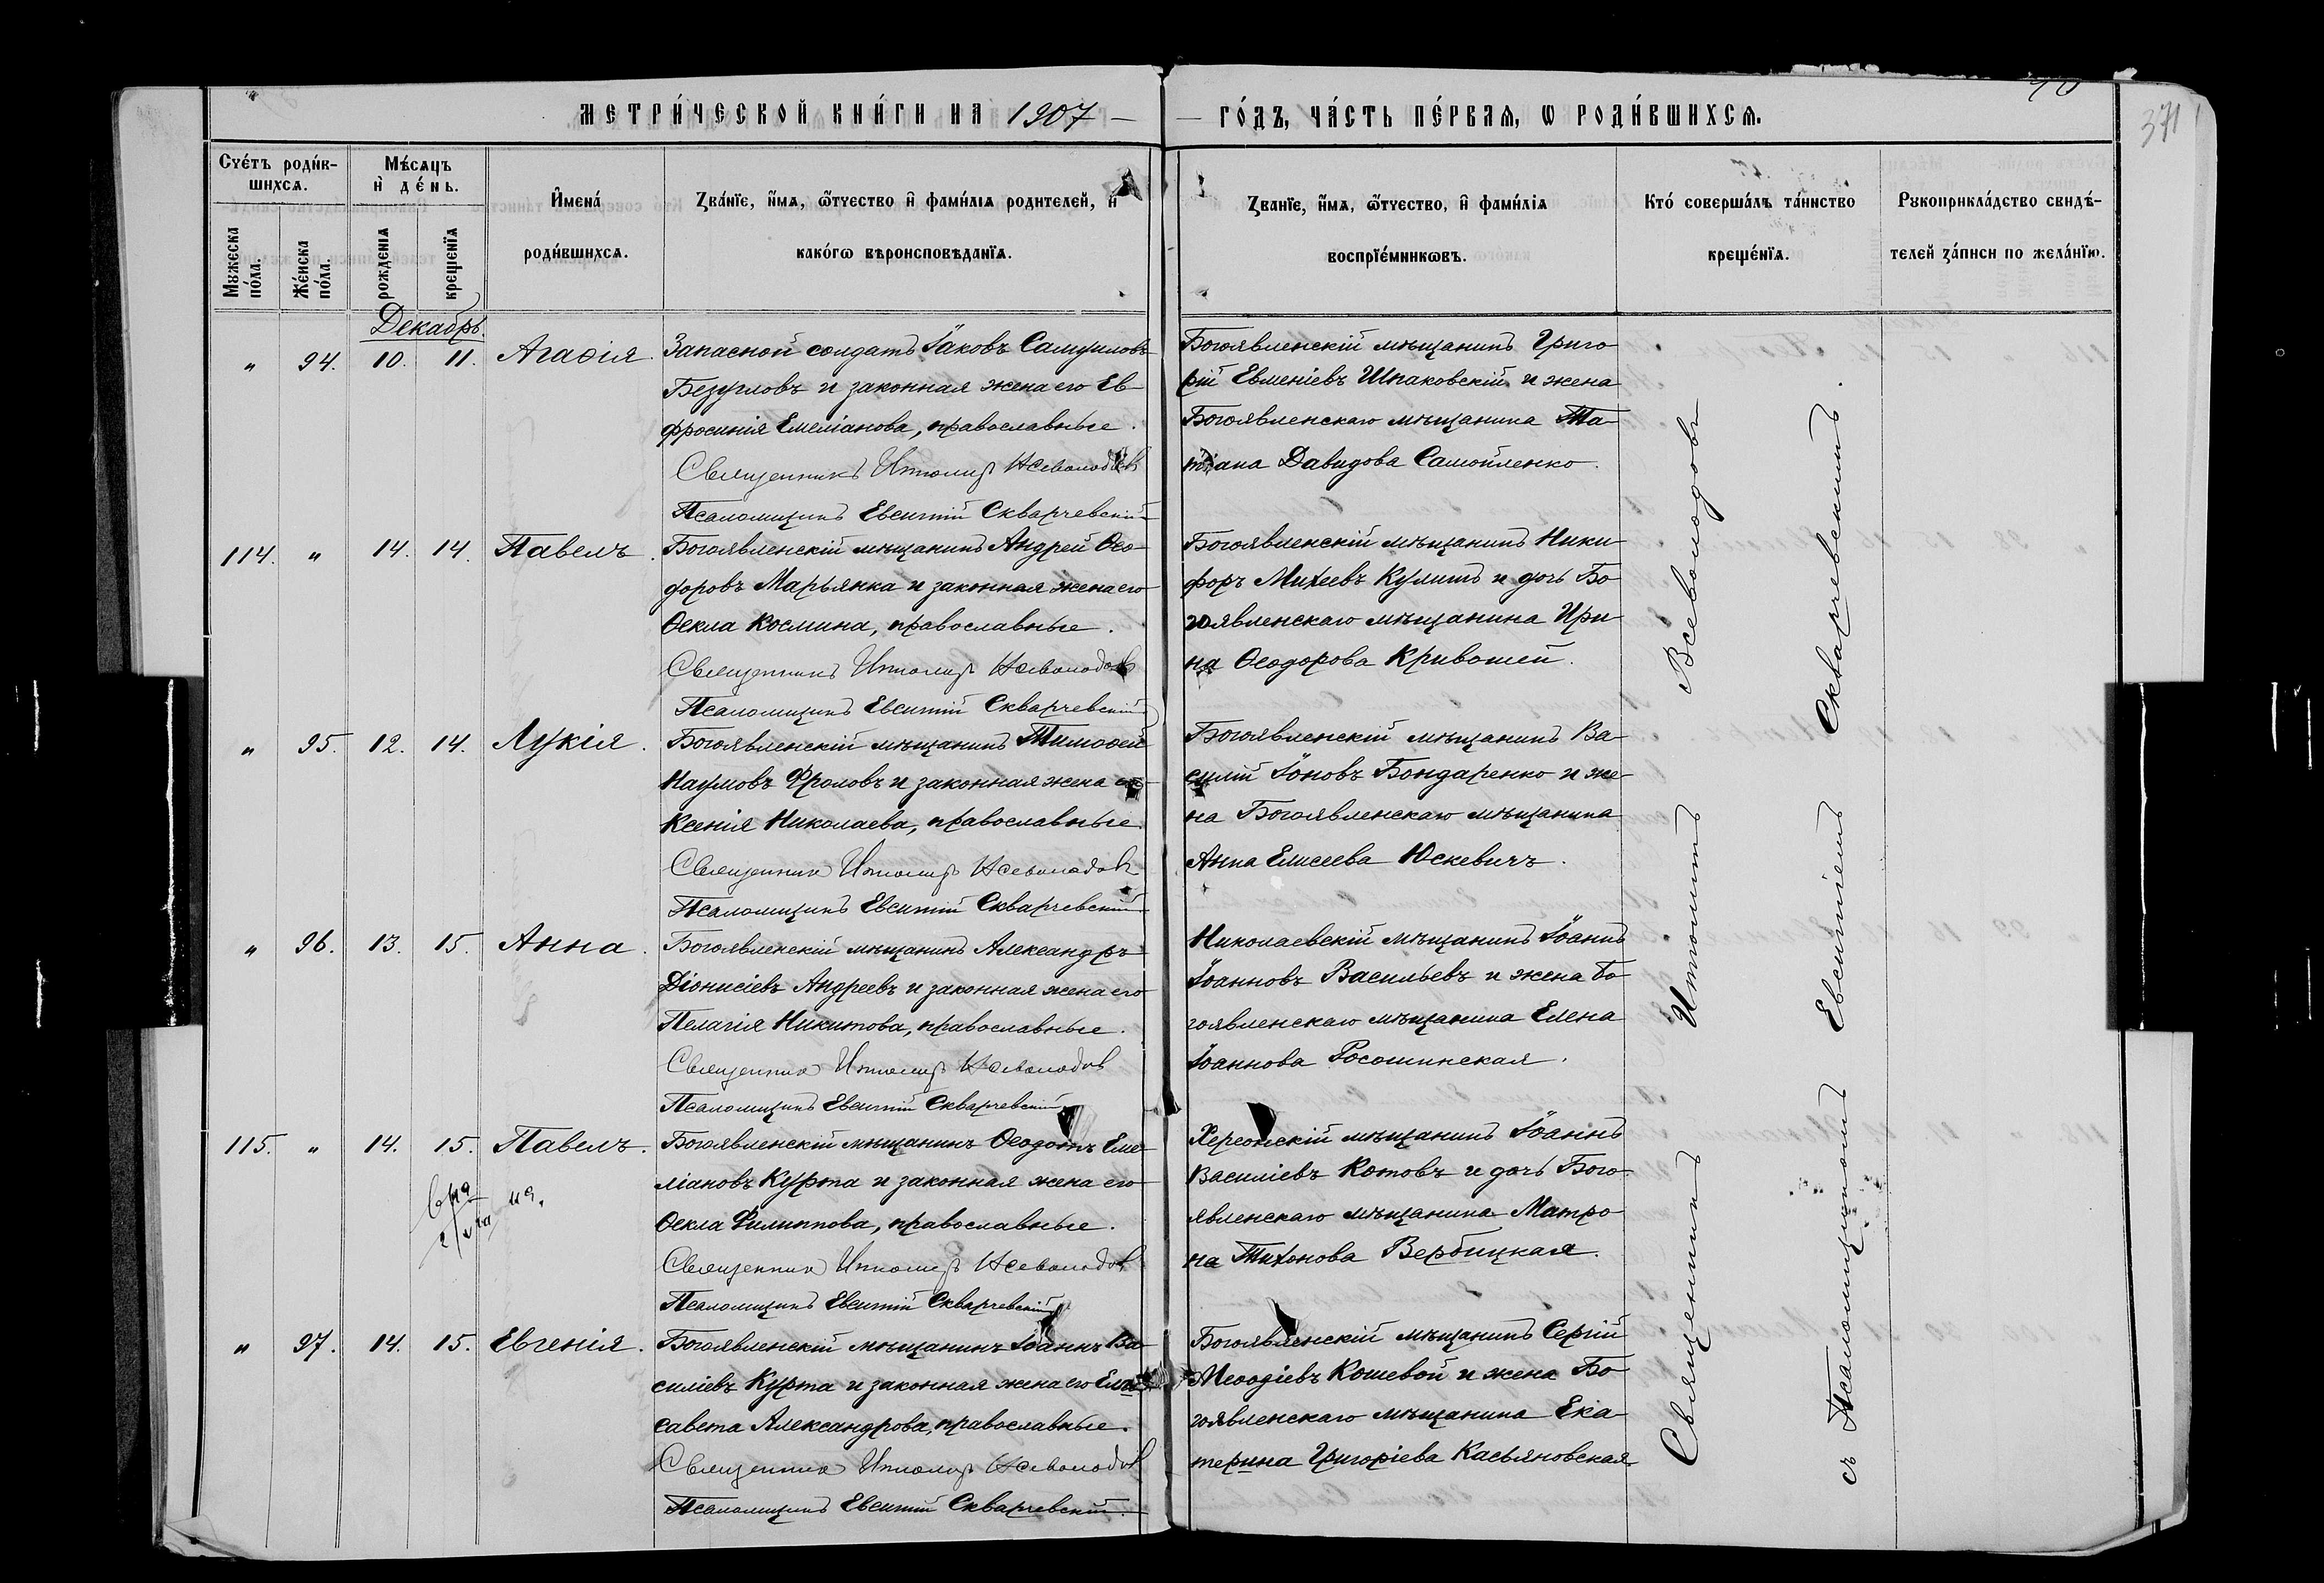 МЕТРИ́ЧЕСКОЙ КНИ́ГИ НА 1907 —
— ГО́ДЪ, ЧА́СТЬ ПЕ́РВАѦ, Ѡ РОДИ́ВШИХСѦ.
371
Сче́тъ роди́в-
шихсѧ.
Мꙋжеска по́ла.
Же́нска по́ла.
Мѣ́сѧцъ
и҆ де́нь.
рожденїѧ
крещенїѧ
И҆мена́
роди́вшихсѧ.
Зва́нїе, и҆́мѧ, ѻ҆́тчество и҆ фами́лїѧ родителей, и҆
како́гѡ вѣроисповѣданїѧ.
Званїе, и҆́мѧ, ѻ҆́тчество, и҆ фами́лїѧ
воспрїе́мникѡвъ.
Кто́ соверша́лъ та́инство
креще́нїѧ.
Рꙋкоприкла́дство свидѣ́-
телей за́писи по жела́нїю.
Декабрь
„ 94. 10. 11. Агаѳія.
Запасной солдатъ Іаковъ Самуиловъ
Безугловъ и законная жена его Ев-
фросинія Емеліанова, православные.
Священникъ Ипполитъ Всеволодовъ
Псаломщикъ Евсигній Скварчевскій
Богоявленскій мѣщанинъ Григо-
рій Евменіевъ Шпаковскій и жена
Богоявленскаго мѣщанина Та-
тіана Давидова Самойленко.
114. „ 14. 14. Павелъ.
Богоявленскій мѣщанинъ Андрей Ѳео-
доровъ Марьянка и законная жена его
Ѳекла Космина, православные.
Священникъ Ипполитъ Всеволодовъ
Псаломщикъ Евсигній Скварчевскій
Богоявленскій мѣщанинъ Ники-
форъ Михеевъ Кулишъ и дочь Бо-
гоявленскаго мѣщанина Ири-
на Ѳеодорова Кривошей.
„ 95. 12. 14. Лукія.
Богоявленскій мѣщанинъ Тимоѳей
Наумовъ Фроловъ и законная жена его
Ксенія Николаева, православные.
Священникъ Ипполитъ Всеволодовъ
Псаломщикъ Евсигній Скварчевскій
Богоявленскій мѣщанинъ Ва-
силій Іоновъ Бондаренко и же-
на Богоявленскаго мѣщанина
Анна Елисеева Юскевичъ.
„ 96. 13. 15. Анна.
Богоявленскій мѣщанинъ Александръ
Діонисіевъ Андреевъ и законная жена его
Пелагія Никитова, православные.
Священникъ Ипполитъ Всеволодовъ
Псаломщикъ Евсигній Скварчевскій
Николаевскій мѣщанинъ Іоаннъ
Іоанновъ Васильевъ и жена Бо-
гоявленскаго мѣщанина Елена
Іоаннова Росошинская.
115. „ 14. 15. Павелъ.
Богоявленскій мѣщанинъ Ѳеодотъ Еме-
ліановъ Курта и законная жена его
Ѳекла Филиппова, православные.
Священникъ Ипполитъ Всеволодовъ
Псаломщикъ Евсигній Скварчевскій
Херсонскій мѣщанинъ Іоаннъ
Василіевъ Котовъ и дочь Бого-
явленскаго мѣщанина Матро-
на Тихонова Вербицкая.
„ 97. 14. 15. Евгенія.
Богоявленскій мѣщанинъ Іоаннъ Ва-
силіевъ Курта и законная жена его Ели-
савета Александрова, православные.
Священникъ Ипполитъ Всеволодовъ
Псаломщикъ Евсигній Скварчевскій.
Богоявленскій мѣщанинъ Сергій
Меѳодіевъ Кошевой и жена Бо-
гоявленскаго мѣщанина Ека-
терина Григоріева Касьяновская
Священникъ Ипполитъ Всеволодовъ
съ Псаломщикомъ Евсигніемъ Скварчевскимъ.